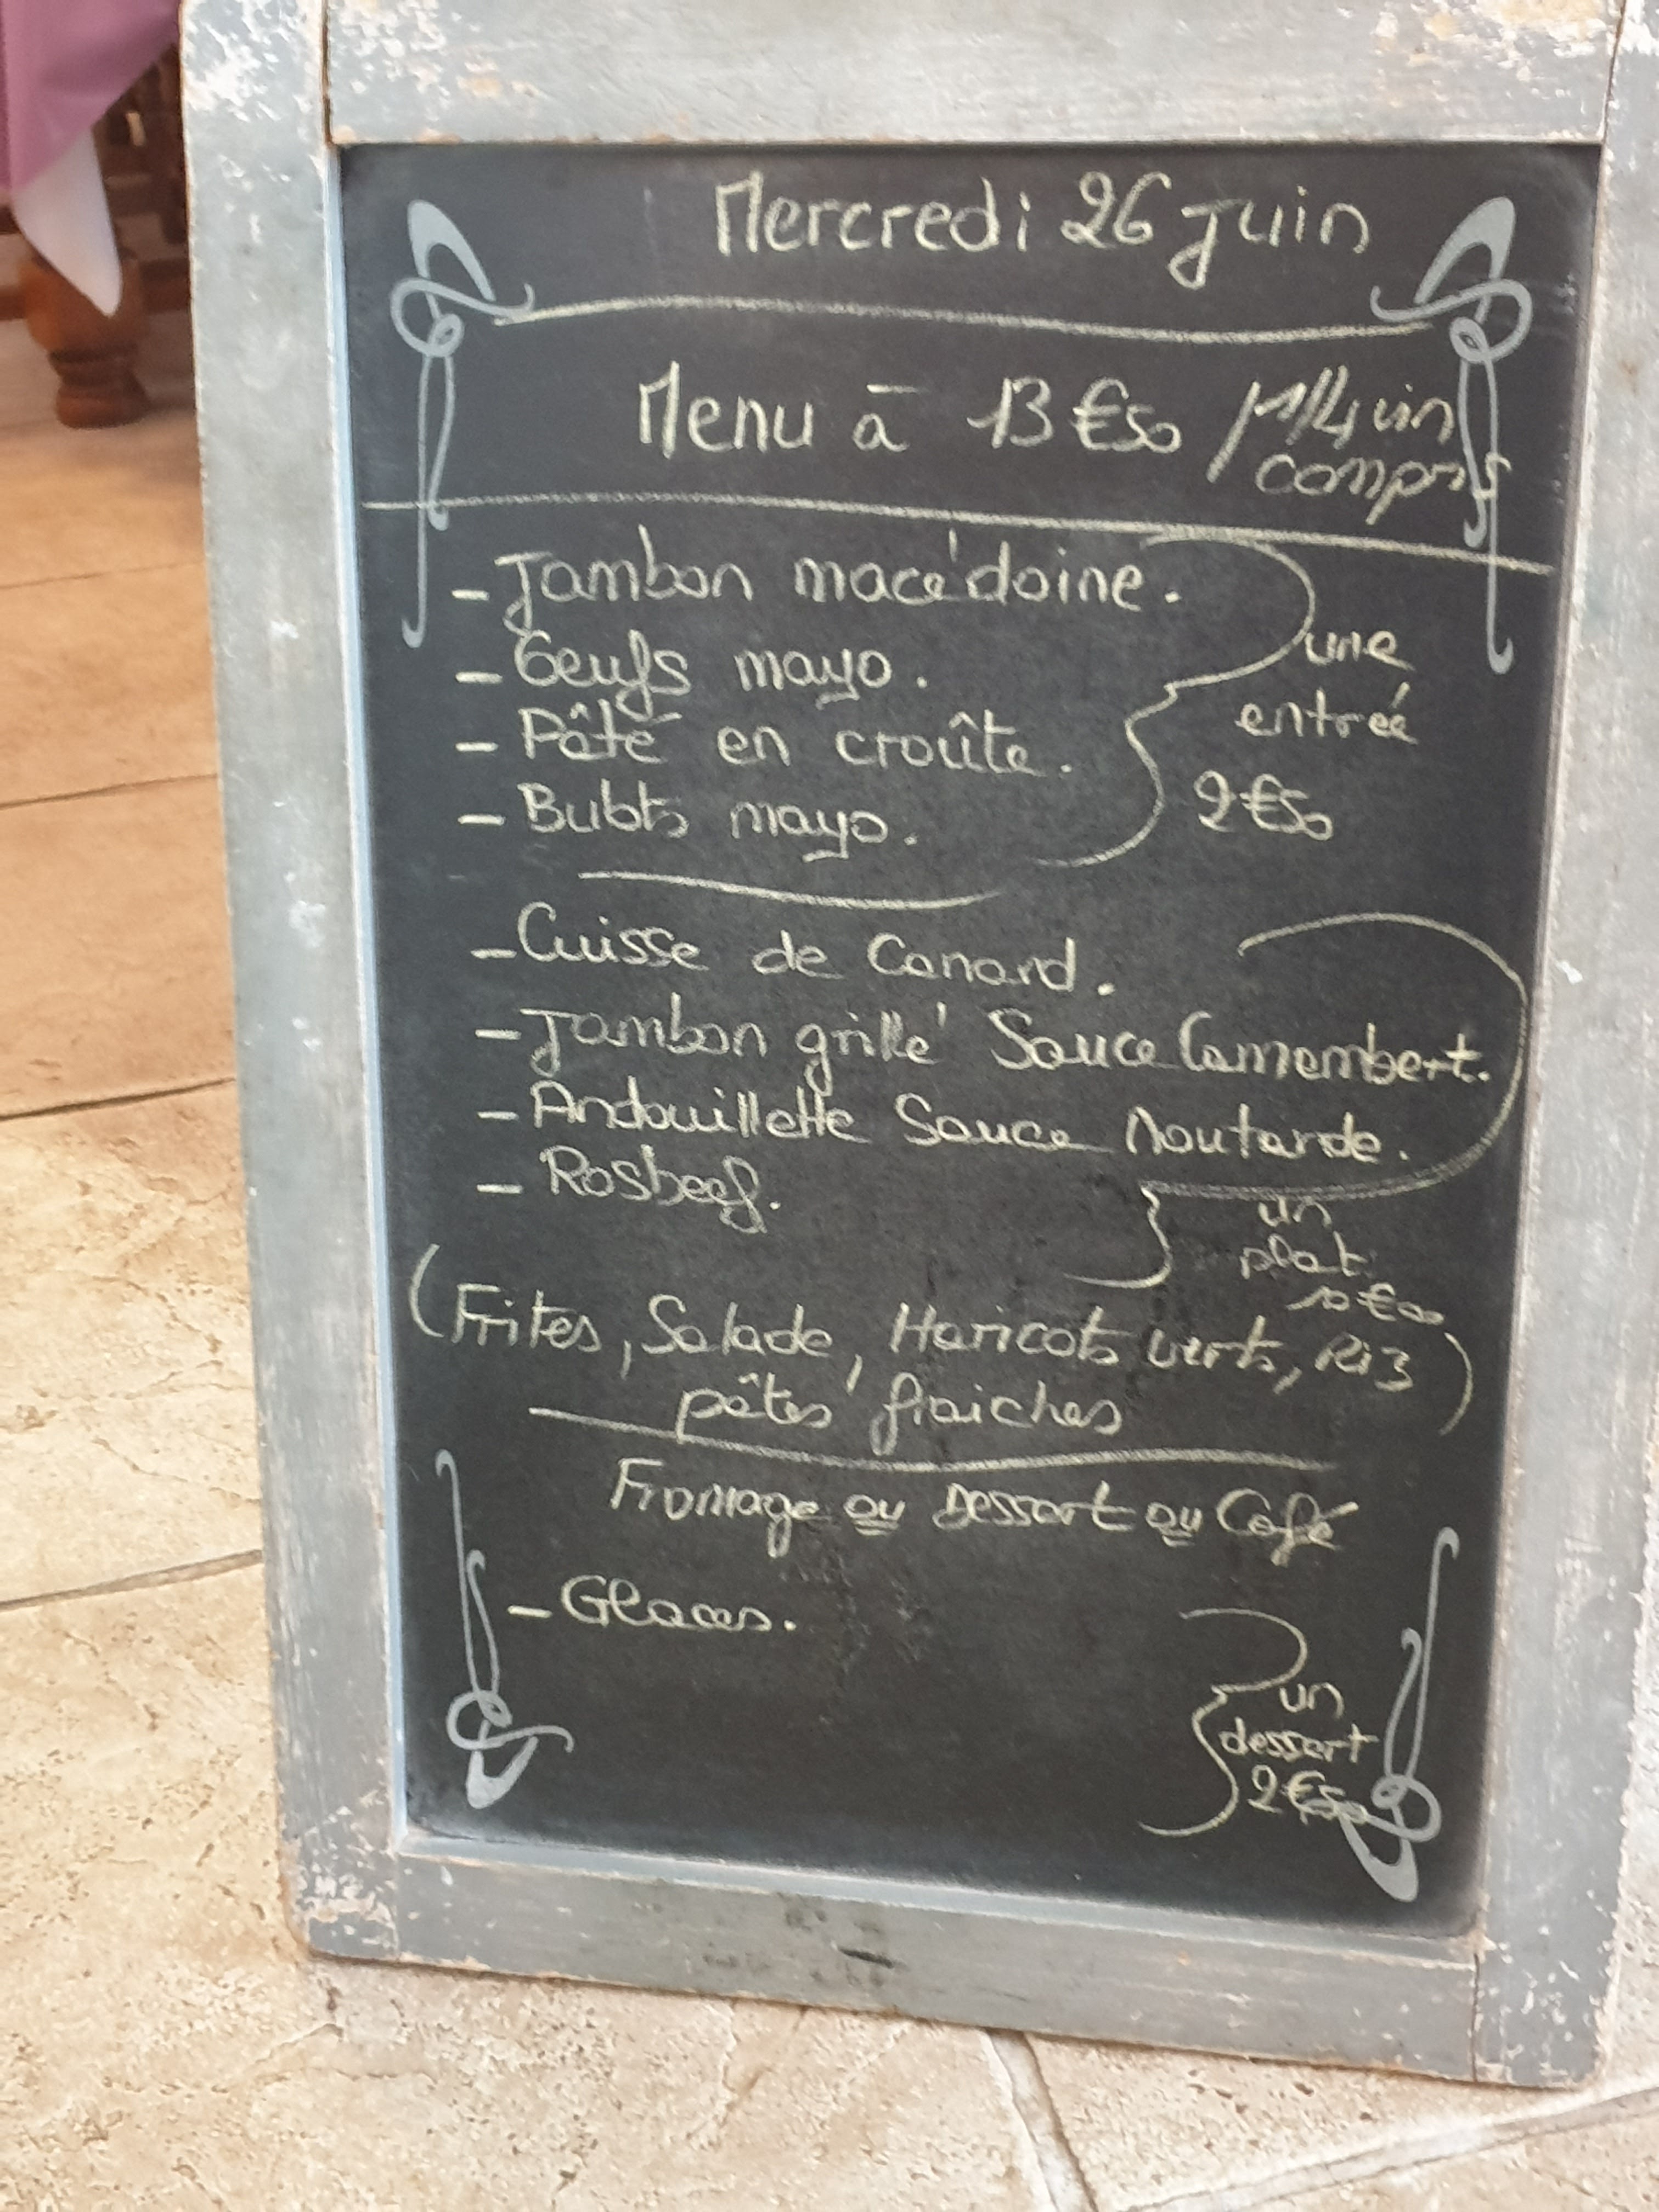 Mercredi 26 Juin
Menu à 13€50 / 1/4 vin
compris
- Jambon macédoine.
- Oeufs mayo.
- Pâté en croûte.
- Bulots mayo.
une
entrée
2€50
- Cuisse de Canard.
- Jambon grillé Sauce Camembert.
- Andouillette Sauce Moutarde.
- Rosbeef.
un
plat
10€00
(Frites, Salade, Haricots verts, Riz)
pâtes fraiches
Fromage ou Dessert ou Café
- Glaces.
un
dessert
2€50